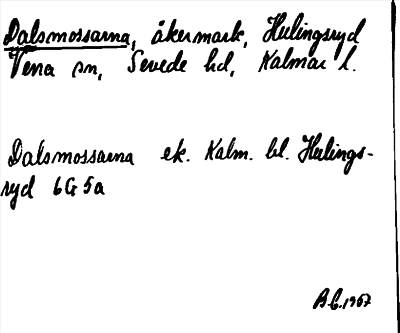 Dalsmossarna, åkermark, Hulingsryd
Vena sn, Sevede hd, Kalmar l.
Dalsmossarna ek. Kalm. bl. Hulings-
ryd 6G 5a
1967